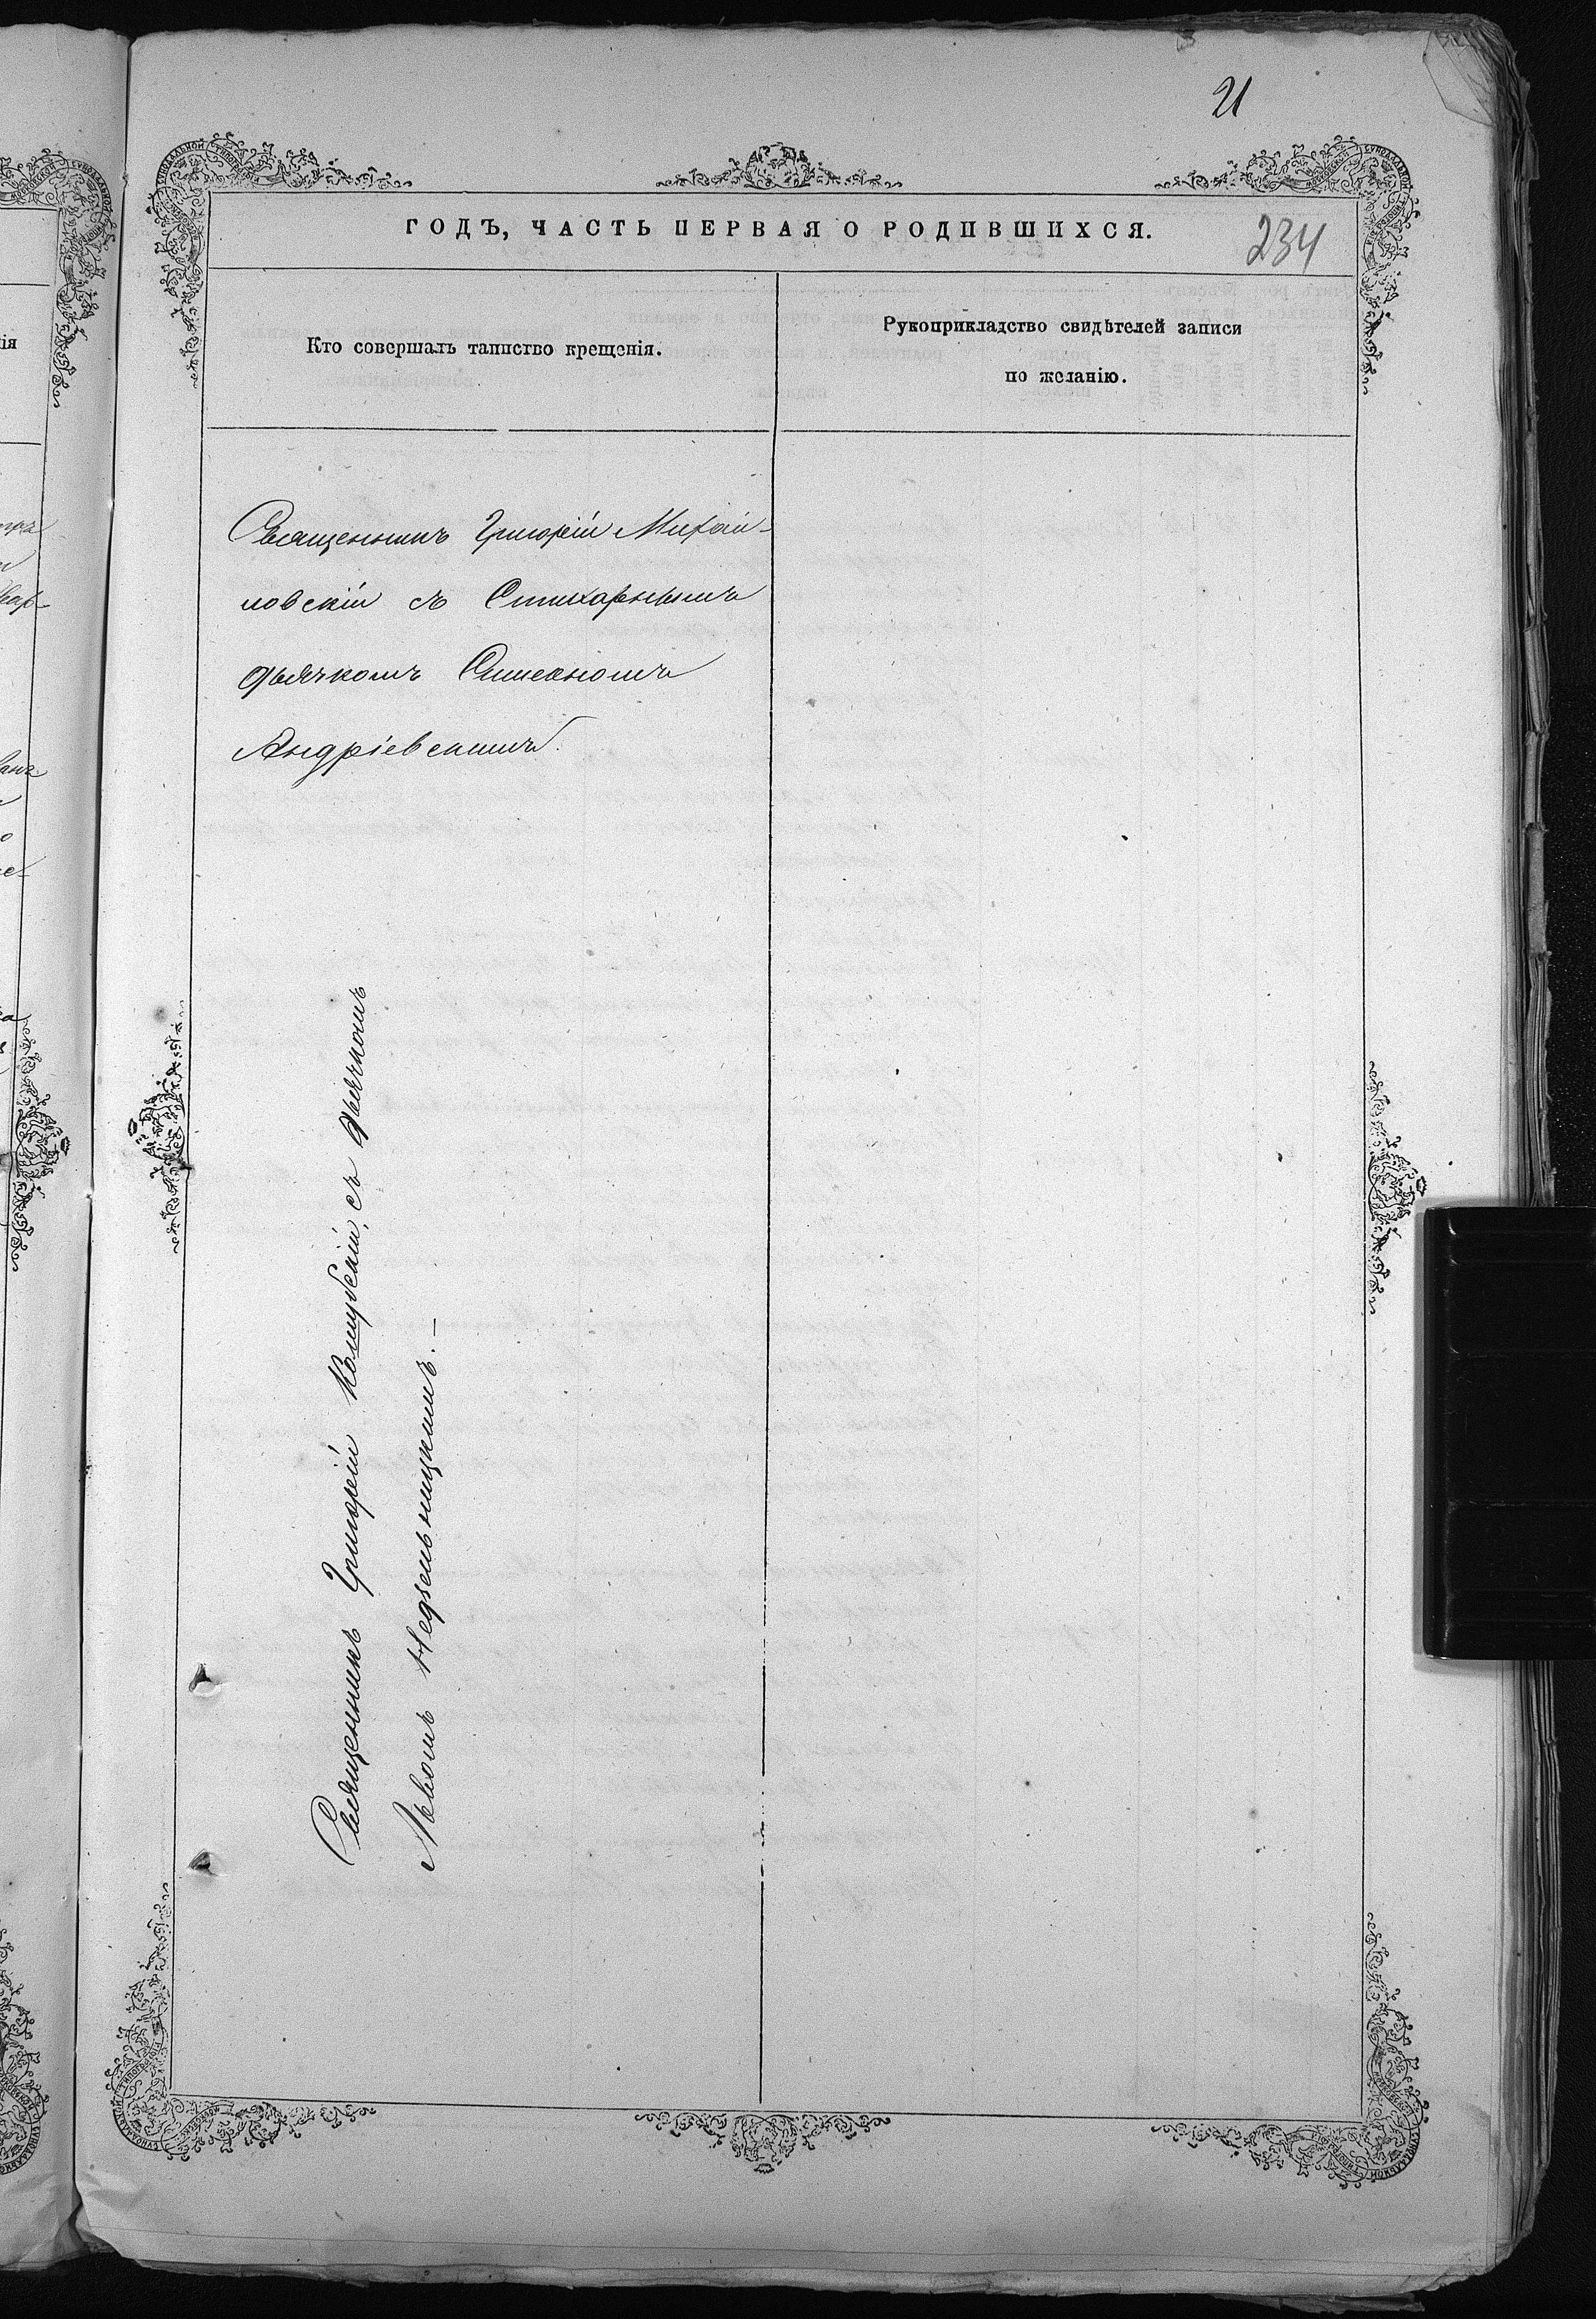 21
ГОДЪ, ЧАСТЬ ПЕРВАЯ О РОДИВШИХСЯ.
234
Кто совершалъ таинство крещенія.
Рукоприкладство свидѣтелей записи
по желанію.
Священникъ Григорій Михай-
ловскій съ Стихарнымъ
дьячкомъ Симеономъ
Андріевскимъ.
Священникъ Григорій съ дьячкомъ
Львомъ Недзельницкимъ.—